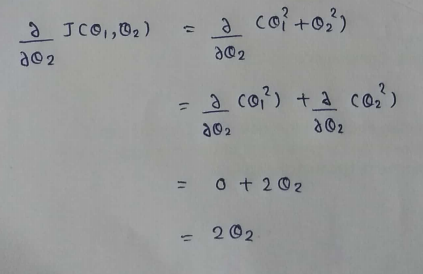 ∂/∂θ₂ J(θ₁,θ₂) = ∂/∂θ₂ (θ₁² + θ₂²)
= ∂/∂θ₂ (θ₁²) + ∂/∂θ₂ (θ₂²)
= 0 + 2θ₂
= 2θ₂